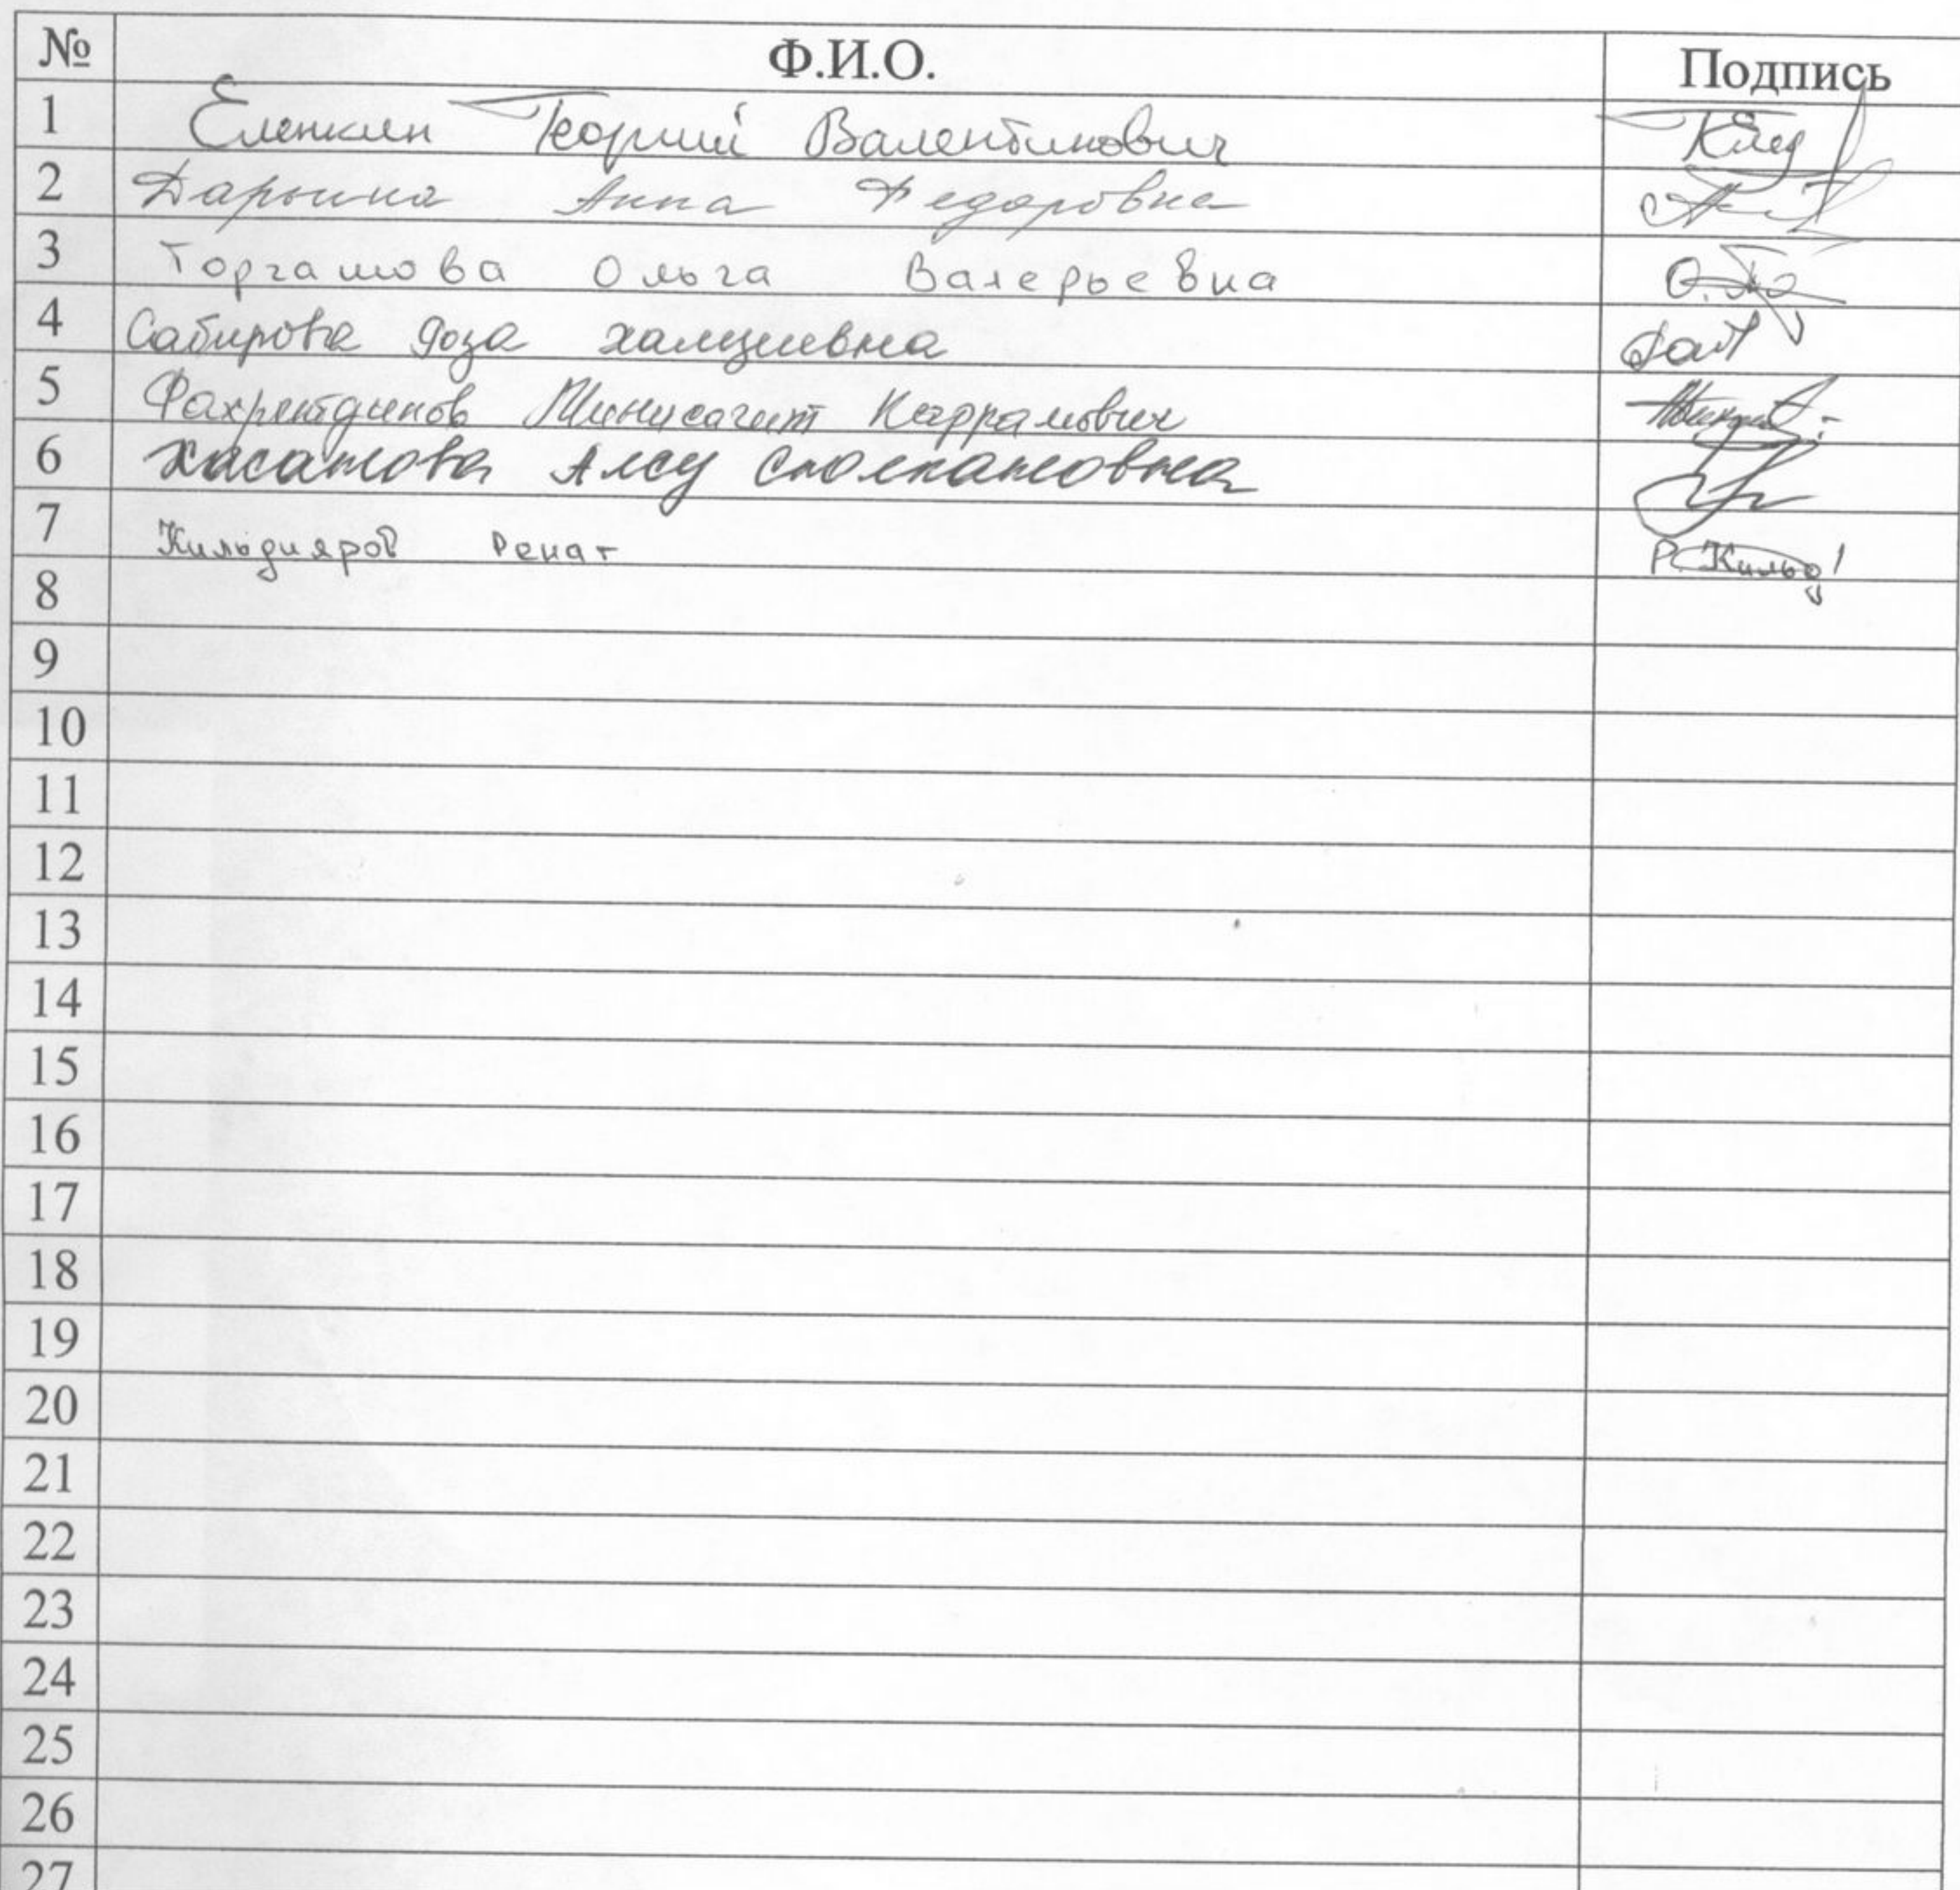 № Ф.И.О. Подпись
1 Еленкин Георгий Валентинович
2 Дарьина Анна Федоровна
3 Торгашова Ольга Валерьевна О.То
4 Сабирова Роза Халиулевна
5 Фахретдинов Минисагит Каррамович
6 Хасанова Алсу
7 Кильдияров Ренат Р.Кильд
8
9
10
11
12
13
14
15
16
17
18
19
20
21
22
23
24
25
26
27